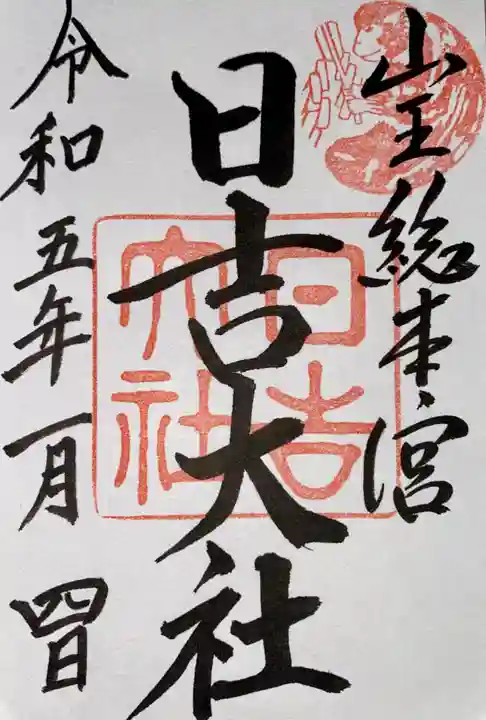 山王総本宮
日吉大社
日吉
大社
令和五年一月四日